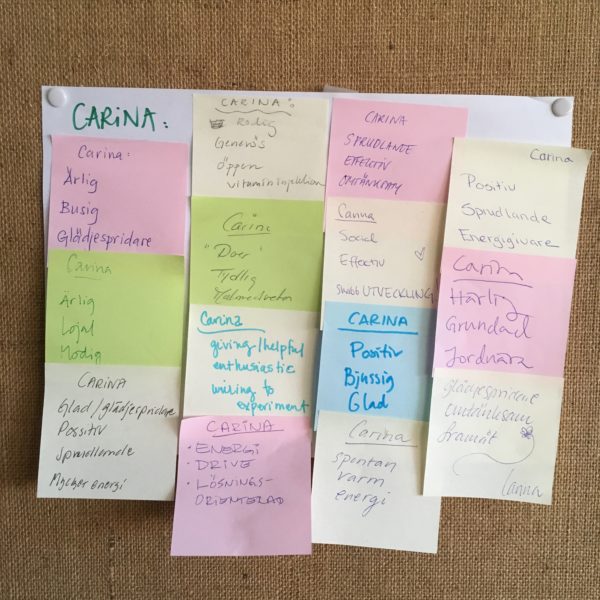 CARINA:
Carina:
Ärlig
Busig
Glädjespridare
Carina
Ärlig
Lojal
Modig
CARINA
Glad/glädjespridare
Possitiv
Sprudlande
Mycket energi
CARINA:
Modig
Generös
Öppen
vitamininjektion
Carina
"Doer"
Tydlig
Målmedveten
Carina
giving/helpful
enthusiastic
willing to
experiment
CARINA
• ENERGI
• DRIVE
• LÖSNINGS-
ORIENTERAD
CARINA
SPRUDLANDE
EFFEKTIV
OMTÄNKSAM
Carina
Social
Effektiv
Snabb UTVECKLING!
CARINA
Positiv
Bjussig
Glad
Carina
spontan
varm
energi
Carina
Positiv
Sprudlande
Energigivare
Carina
Härlig
Grundad
Jordnära
glädjespridare
omtänksam
framåt
Carina